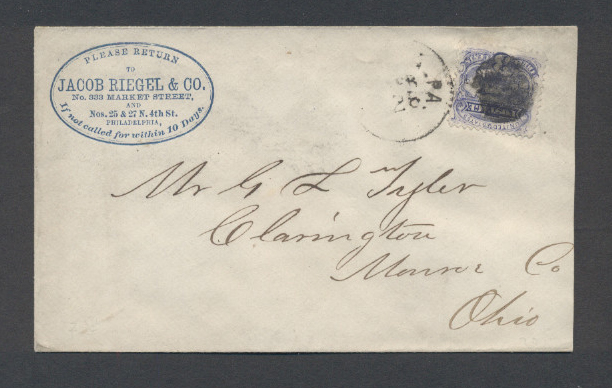 PLEASE RETURN
TO
JACOB RIEGEL & CO.
No. 333 MARKET STREET,
AND
Nos. 25 & 27 N. 4th St.
PHILADELPHIA,
If not called for within 10 Days.
PA.
Mr G L Tyler
Clarington
Monroe Co
Ohio